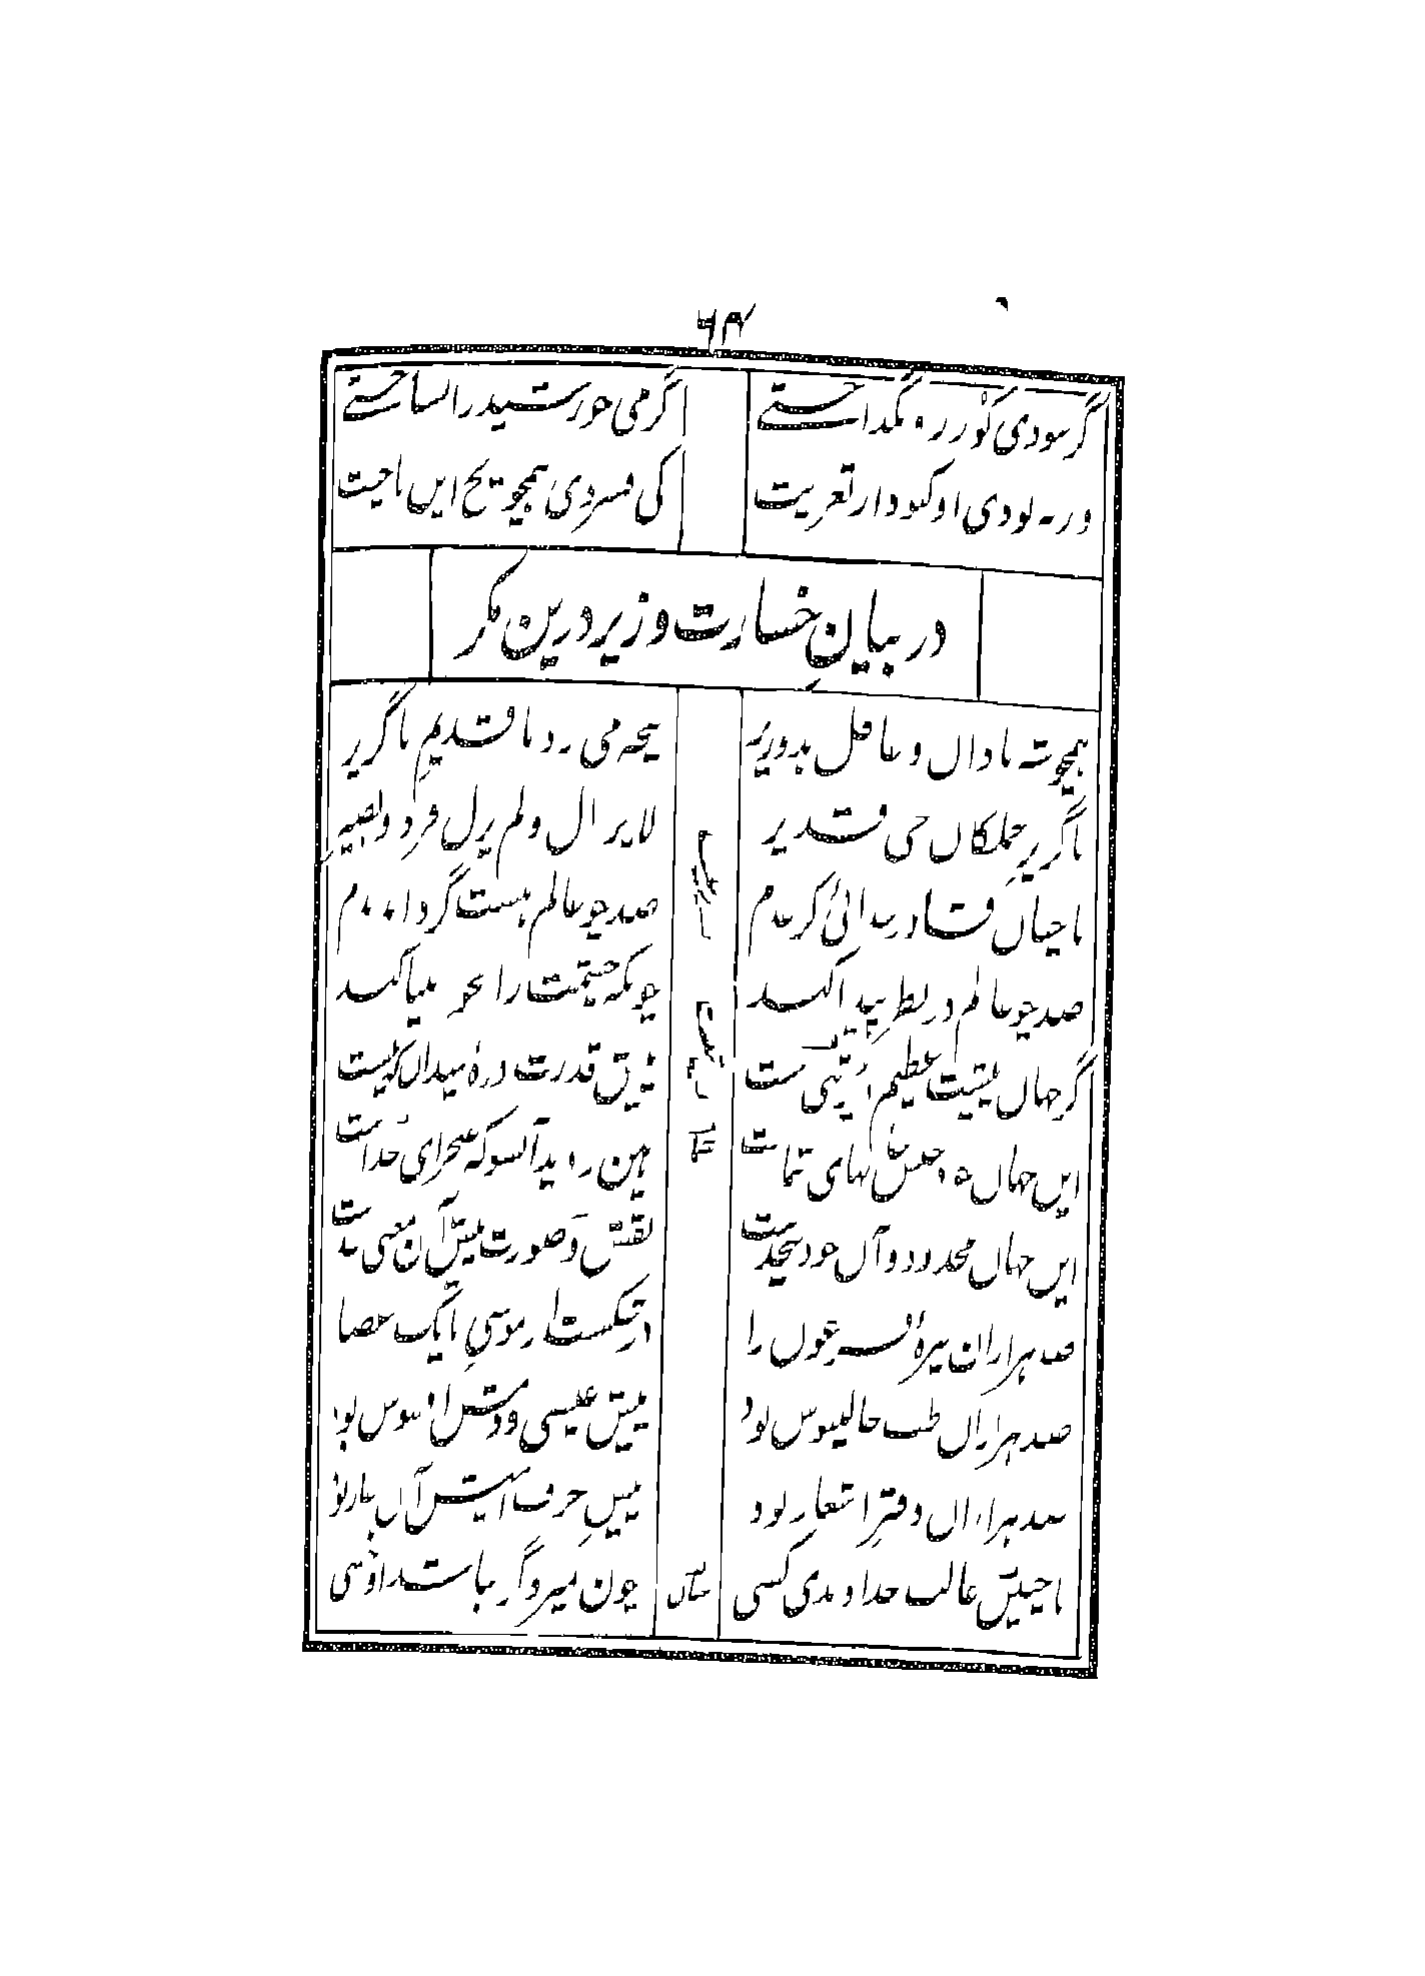 ۶۴
گر نبودی کور زو بگداختے
گرمی خورشید را بشناختے
ور نبودی او کبود از تعزیت
کی فسردی همچو یخ این ناحیت
در بیانِ خسارت وزیر درین مکر
همچو شه نادان و غافل بد وزیر
پنجه می زد با قدیمِ ناگزیر
ناگزیرِ جملگان حی قدیر
لایزال و لم یزل فرد و بصیر
با چنان قادر خدائی کز عدم
صد چو عالم هست گرداند بدم
صد چو عالم در نظر پیدا کند
چونکه چشمت را بخود بینا کند
گر جهان پیشت عظیم
پیش قدرت ذرهٔ میدان که نیست
این جهان خود حبس جانهای شماست
هین روید آنسو که صحرای خداست
این جهان محدود و آن خود بیحدست
نقش و صورت پیش آن معنی سدست
صد هزاران نیزهٔ فرعون را
در شکست از موسیِ با یک عصا
صد هزاران طب جالینوس بود
پیش عیسی و دمش افسوس بود
صد هزاران دفترِ اشعار بود
پیشِ حرف امیش آن عار بود
با چنین غالب خداوندی کسی
چون نمیرد گر نباشد او خسی